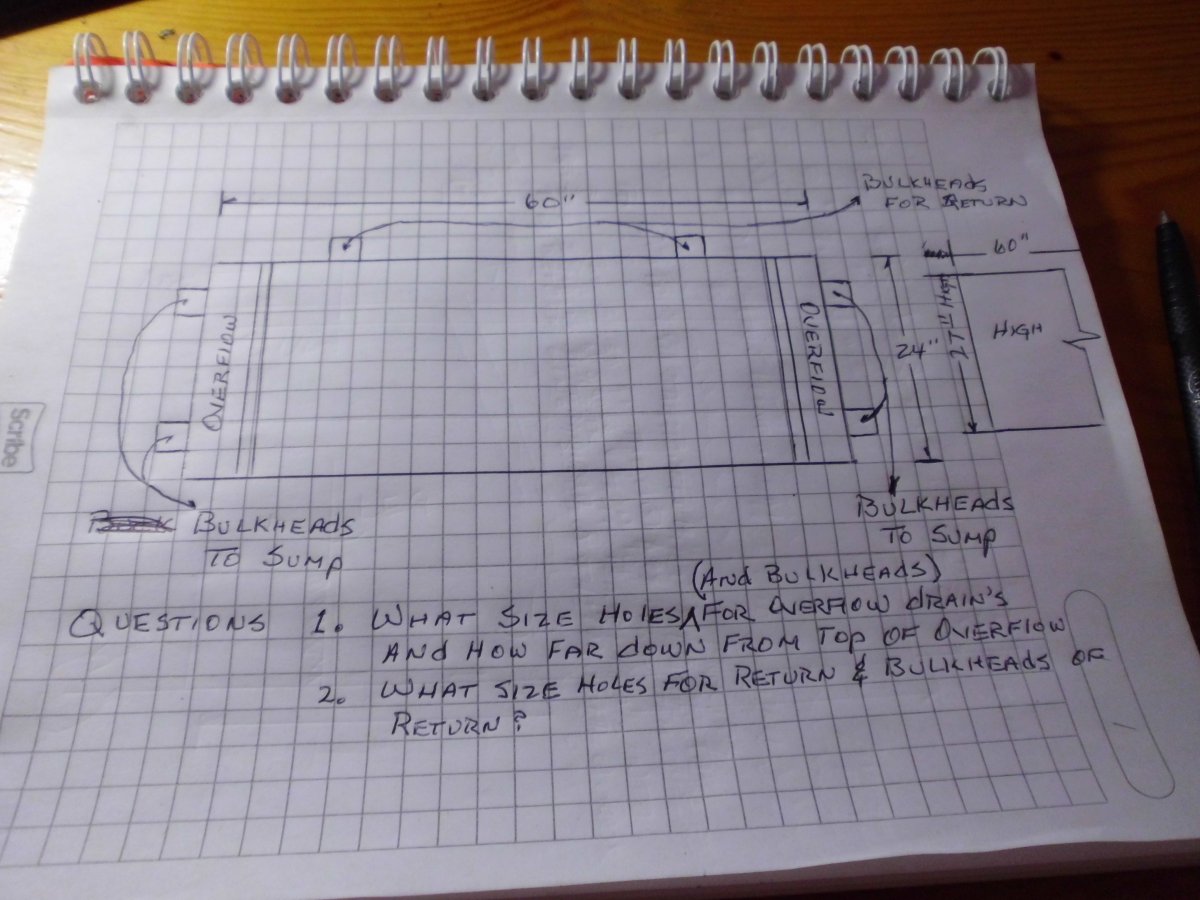 60"
BULKHEADS
FOR RETURN
60"
OVERFLOW
OVERFLOW
24"
27" HIGH
HIGH
Scribe
BULKHEADS
TO SUMP
BULKHEADS
TO SUMP
(AND BULKHEADS)
QUESTIONS 1. WHAT SIZE HOLES ∧ FOR OVERFLOW DRAIN'S
AND HOW FAR DOWN FROM TOP OF OVERFLOW
2. WHAT SIZE HOLES FOR RETURN & BULKHEADS OF
RETURN?